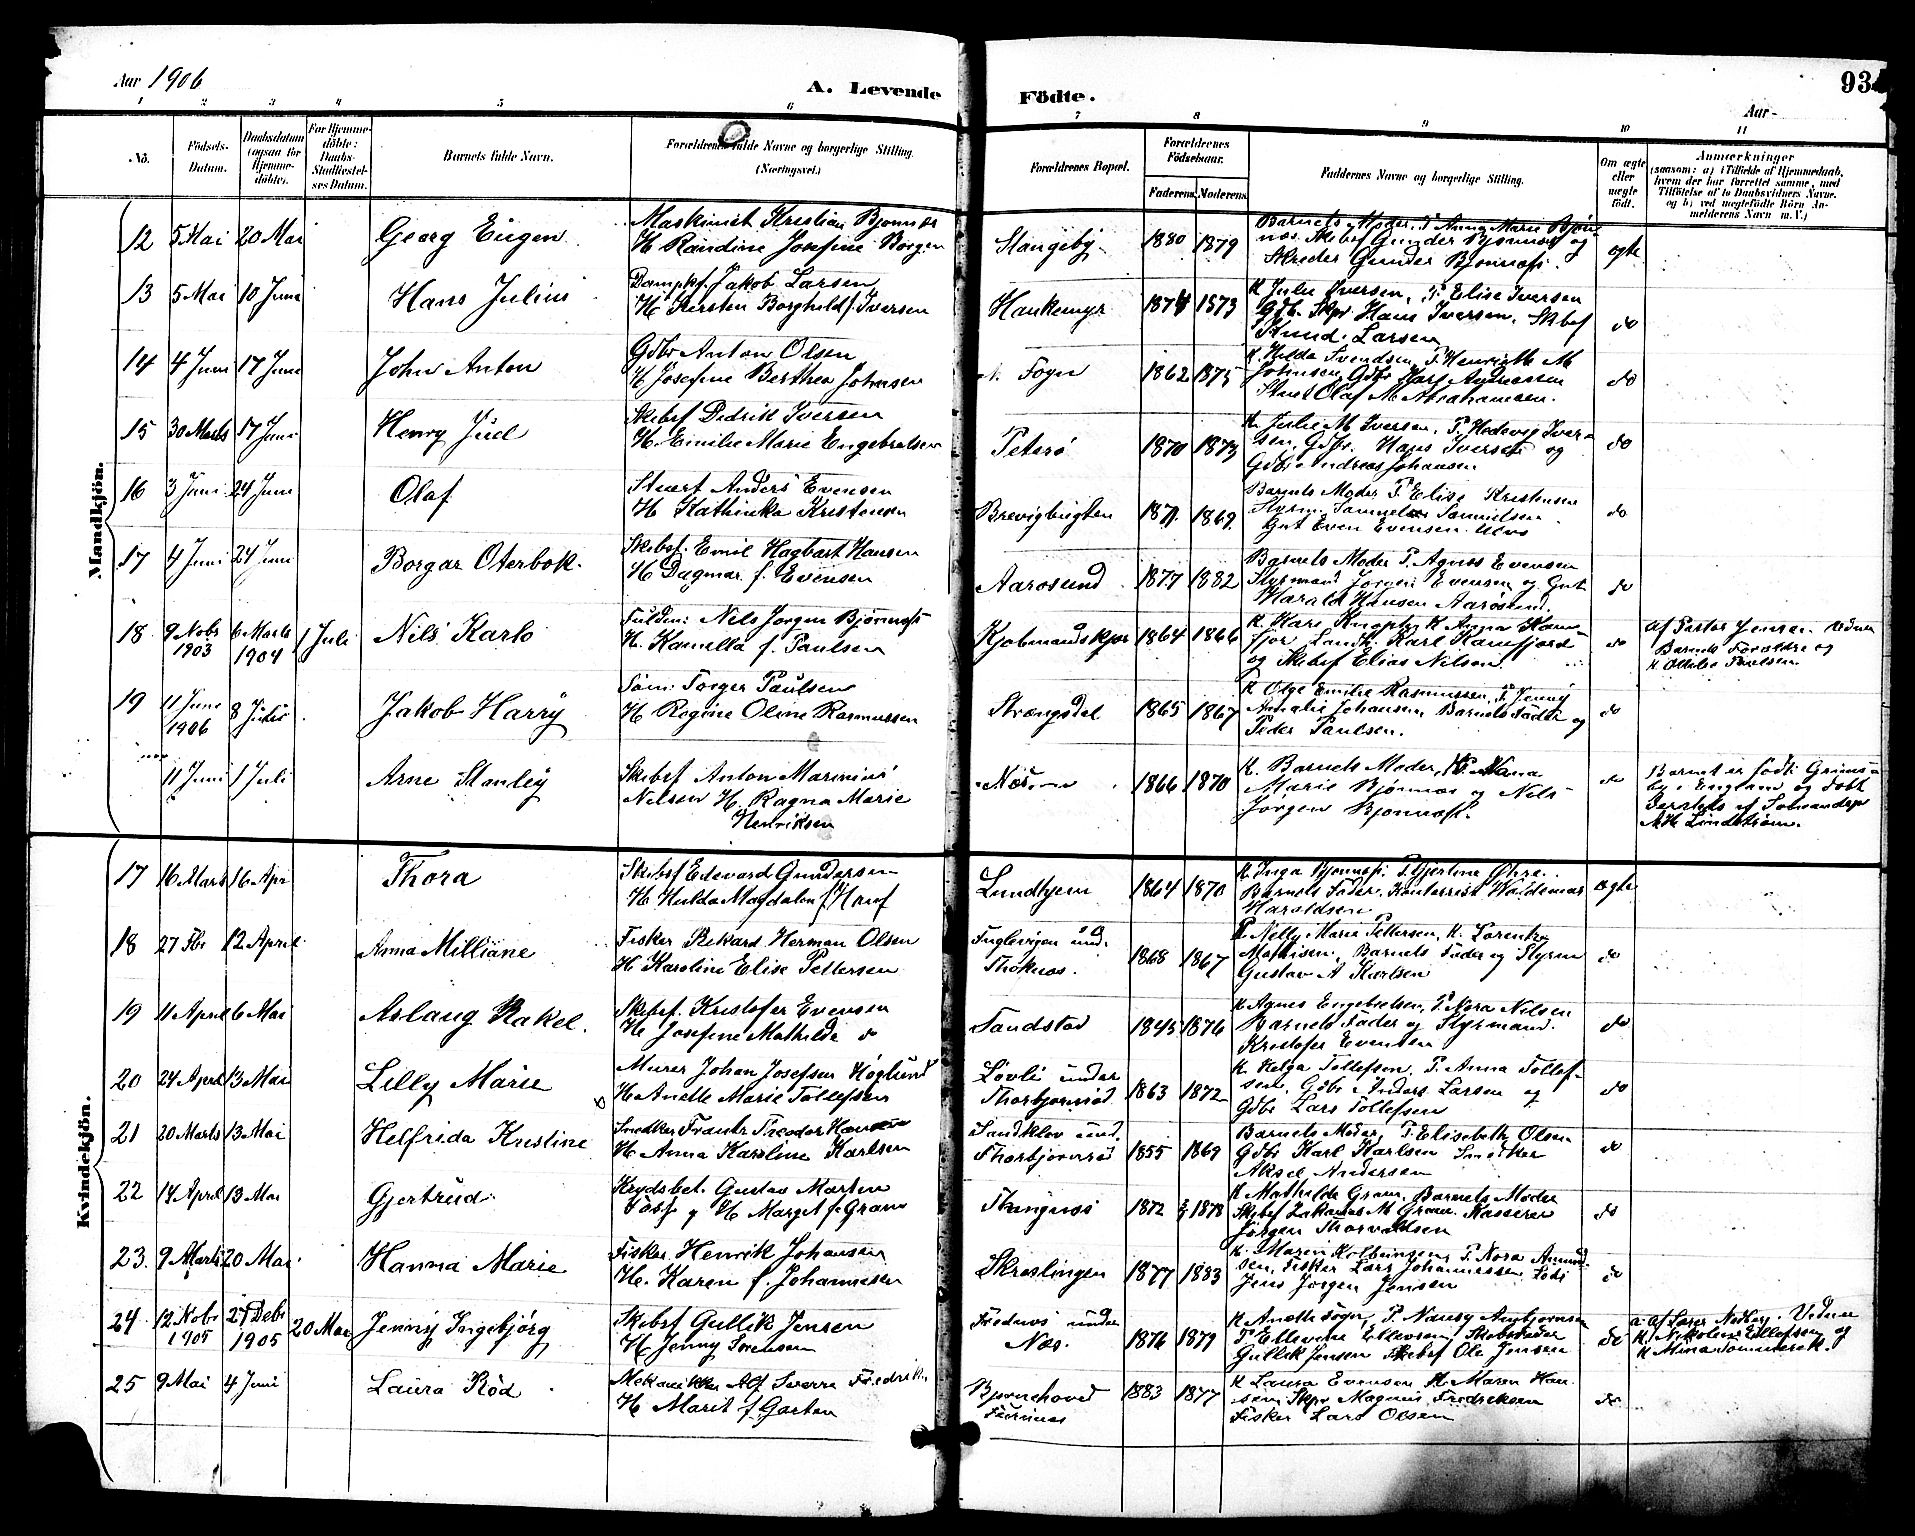 Aar 1906
A. Levende Födte.
93
Aar
1 2 3 4 5 6 7 8 9 10 11
No.
Födsels-Datum.
Daabsdatum (ogsaa for Hjemme-döbte).
For Hjemme-döbte: Daabs-Stadfæstel-ses Datum.
Barnets fulde Navn.
Forældrenes fulde Navne og borgerlige Stilling. (Næringsvei.)
Forældrenes Bopæl.
Forældrenes Födselsaar.
Faderens. Moderens.
Faddernes Navne og borgerlige Stilling.
Om ægte eller uægte födt.
Anmærkninger (saasom: a) i Tilfælde af Hjemmedaab, hvem der har forrettet samme, med Tilföielse af to Daabsvidners Navne, og b) ved uægtefödte Börn Anmelderens Navn m. V.)
Mandkjön.
12 5 Mai 20 Mai Georg Eugen
Maskinist Kristian Bjønnæs
H Randine Josefine Borgen
Slangeby 1880 1879
Barnets Moder, P. Anna Marie Bjøn-
næs Skibsf Gunder Bjønnæs og
Skreder Gunder Bjønnæs. ægte
13 5 Mai 10 Juni Hans Julius
Dampkf. Jakob Larsen
H Kirsten Borghild f. Iversen
Haukemyr 1874 1873
K Julie Iversen, P. Elise Iversen
Gdb. Skpr Hans Iversen, Skbsf
Knud Larsen do
14 4 Juni 17 Juni John Anton
Gdbr Anton Olsen
H Josefine Berthea Johnsen
Føgn 1862 1875
K. Hilda Svendsen, P. Henriette M
Johnsen, Gdbr Karl Andreassen
Stuert Olaf M Abrahamsen. do
15 30 Marts 17 Juni Henry Juel
Skibsf Didrik Iversen
H. Emilie Marie Engebretsen
Peterø 1870 1873
K. Julie M Iversen, P. Hedevig Iver-
sen, Gdbr. Hans Iversen og
Gdbr Andreas Johansen do
16 3 Juni 24 Juni Olaf
Stuert Anders Evensen
H Kathinka Kristensen
Brevigbugten 1871. 1869.
Barnets Moder P. Elise Kristensen
Styrm Samuel Samuelsen
Gut Even Evensen do
17 4 Juni 24 Juni Borgar Oterbek.
Skibsf. Emil Hagbart Hansen
H Dagmar f. Evensen
Aarøsund 1877 1882
Barnets Moder P. Agnes Evensen
Styrmand Jørgen Evensen og Gut
Harald Hansen Aarøsund. do
18 9 Nobr 1903 6 Marts 1904 1 Juli Nils Karlo
Fuldm: Nils Jørgen Bjønnæss
H. Kamilla f. Paulsen
Kjøbmandskjær 1864 1866
K. Kars Knoph, K Anna Kam-
fjor, Landh. Karl Kamfjord
og Skibsf Elias Nilsen. do
Af Pastor Jensen. Vidner
Barnets Forældre og
K Ottilie Paulsen.
19 11 Juni 1906 8 Juli Jakob Harry
Tøm: Torger Paulsen
H Regine Oline Rasmussen
Strængsdal 1865 1867
K Olga Emilie Rasmussen, P. Jenny
Amalie Johansen, Barnets Fader og
Peder Paulsen. do
11 Juni 1 Juli Arne Stanley
Skibsf Anton Marinius
Nilsen H. Ragna Marie
Henriksen
Næs 1866 1870
K. Barnets Moder, P. Nana
Marie Bjønnæs og Nils
Jørgen Bjønnæss. do
Barnet er født i Grims-
by i England og døbt
dersteds af Sømandspr
A H Lindstrøm.
Kvindekjön.
17 16 Marts 16 Apr Thora
Skibsf Edevard Gundersen
H Hulda Magdalen f Hauf
Lundhjem 1864 1870
K Inga Bjønness, P. Gjertine Øhre.
Barnets Fader, Kontorrist Waldemar
Haraldsen ægte
18 27 Fbr 12 April Anna Milliane
Fisker Rikard Herman Olsen
H Karoline Elise Pettersen
Fuglevigen und.
Thoknæs. 1868 1867
P. Nelly Marie Pettersen, K. Lorentze
Mathisen, Barnets Fader og Styrm
Gustav A Karlsen do
19 11 April 6 Mai Aslaug Rakel.
Skibsf. Kristofer Evensen
H Josefine Mathilde do
Sandstød 1845 1876
K Agnes Engebretsen, P. Nora Nilsen
Barnets Fader og Styrmand
Kristofer Evensen do
20 24 April 13 Mai Lilly Marie
Murer Johan Josefsen Høglund
H Anette Marie Tollefsen
Løvli under
Thorbjørnrød 1863 1872
K. Helga Tollefsen, P. Anna Tollef-
sen, Gdbr Anders Larsen og
Gdbr Lars Tollefsen do
21 20 Marts 13 Mai Helfrida Kristine
Snedker Frantz Theodor Hansen
H Anna Karoline Karlsen
Sandkløv und.
Thorbjørnrø 1855 1869
Barnets Moder, P. Elisabeth Olsen
Gdbr Karl Karlsen Snedker
Aksel Andersen do
22 14 April 13 Mai Gjertrud
Krydsbet. Gustav Morten
H Margit f. Gram
1872 1878
K Mathilde Gram, Barnets Moder
Skibsf Zakarias M Gram, Kasserer
Jørgen Thorvaldsen do
23. 9 Marts 20 Mai Hanna Marie
Fisker Henrik Johansen
H. Karen f. Johannesen
Skreslingen 1877 1883
K. Maren Kolbeinsen, P. Nora Amund-
sen, Fisker Lars Johannessen, Fisk
Jens Jørgen Jenssen do
24 12 Nobr 1905 27 Debr 1905 20 Mai Jenny Ingebjörg
Skibsf Gullik Jensen
H Jenny Sørensen
Frednes under
Næs. 1876 1879
K Anette Fogn, P. Nancy Anbjørnsen
P Ellevine Ellevsen, Skibsreder
Gullik Jensen Skibsf Ole Jensen do
a. Af Lærer Nøkleg. Vidner
K. Nikoline Ellefsen og
K Mina Tommerek.
25 9 Mai 4 Juni Laura Röd
Mekanikker Alf Sverre Fredrik.
H Marit f. Garten
Bjørnehoved
1883 1877
K Laura Evensen K Maren Han-
sen, Skpr Magnus Fredriksen
Fisker Lars Olsen do